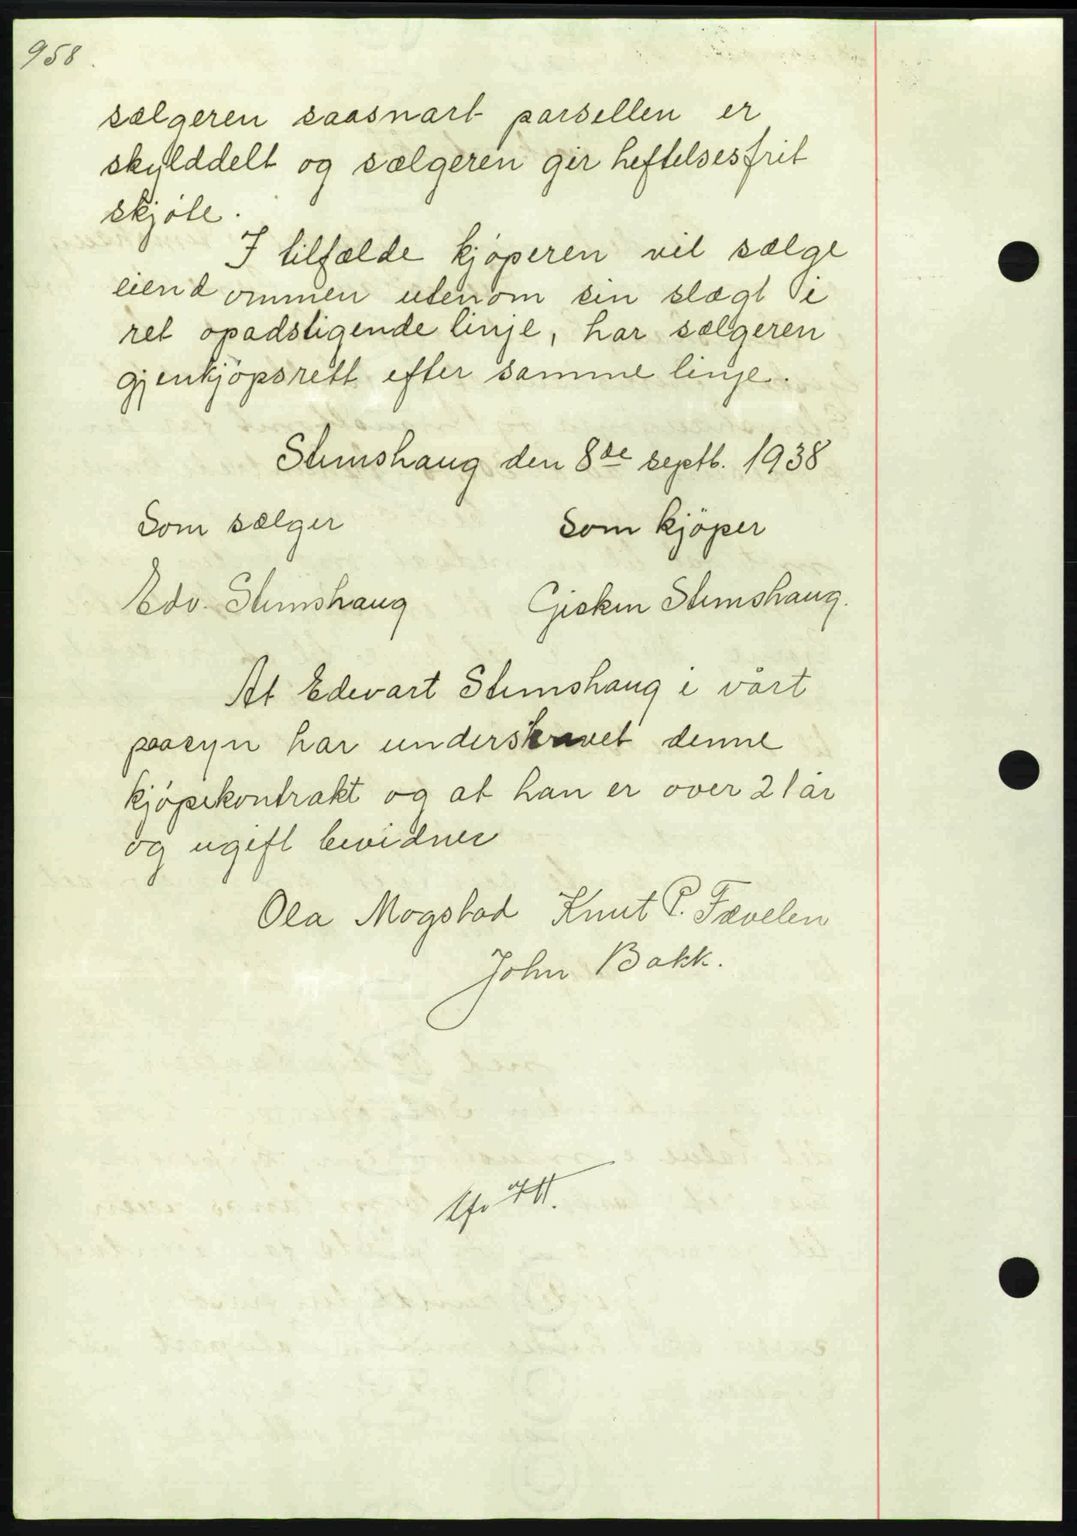 958.
sælgeren saasnart parsellen er
skylddelt og sælgeren gir heftelsesfrit
skjöte.
I tilfælde kjöperen vil sælge
eiendommen utenom sin slægt i
ret opadstigende linje, har sælgeren
gjenkjöpsrett efter samme linje.
Stimshaug den 8de septb. 1938
Som sælger Som kjöper
Edv. Stimshaug Gisken Stimshaug.
At Edevart Stimshaug i vårt
paasyn har underskrevet denne
kjöpekontrakt og at han er over 21 år
og ugift bevidner
Ola Mogstad Knut P. Fævelen
John Bakk.